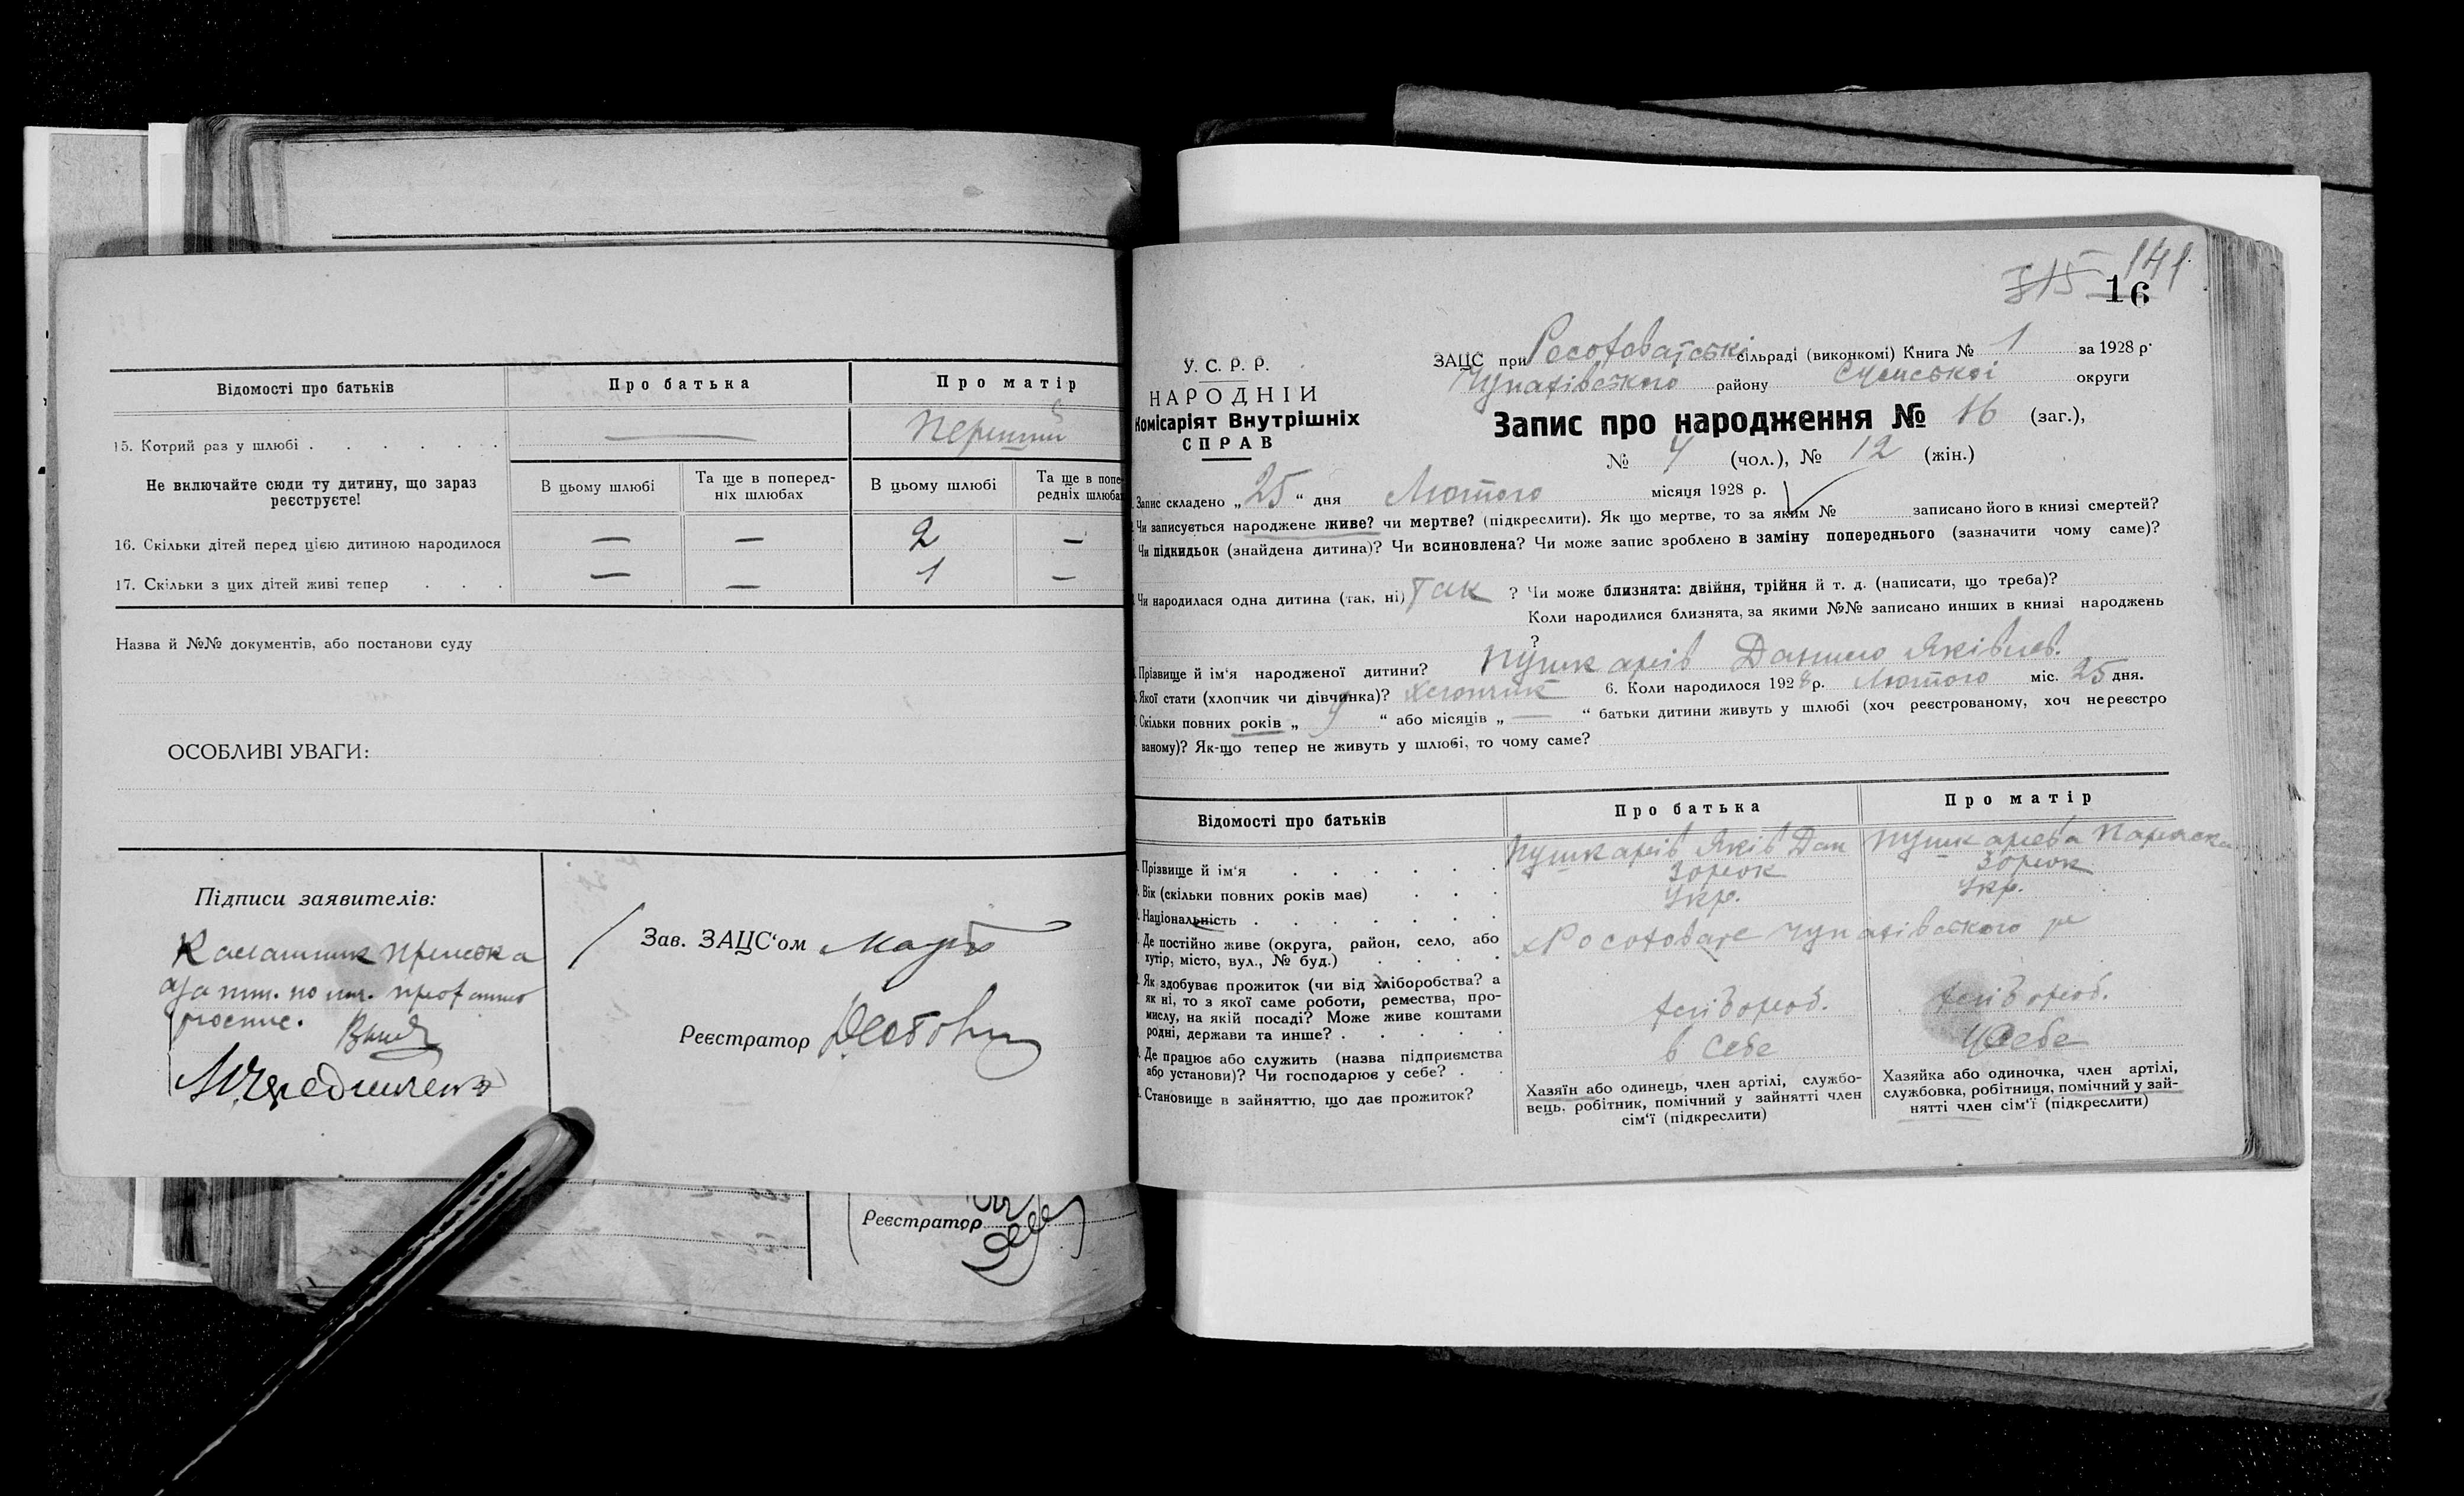 Відомості про батьків
Про батька
Про матір
15. Котрий раз у шлюбі . . . . . .
—
Перший
Не включайте сюди ту дитину, що зараз реєструєте!
В цьому шлюбі
Та ще в поперед-
ніх шлюбах
В цьому шлюбі
Та ще в попе-
редніх шлюбах
16. Скільки дітей перед цією дитиною народилося
— — 2 —
17. Скільки з цих дітей живі тепер . . .
— — 1 —
Назва й №№ документів, або постанови суду
ОСОБЛИВІ УВАГИ:
Підписи заявителів:
Зав. ЗАЦС‘ом
Реєстратор
Реєстратор
315 141
16
У. С. Р. Р.
НАРОДНІЙ
Комісаріят Внутрішніх
СПРАВ
ЗАЦС при сільраді (виконкомі) Книга № 1 за 1928 р.
району Сумської округи
Запис про народження № 16 (заг.),
№ 4 (чол.), № 12 (жін.)
Запис складено „25“ дня Лютого місяця 1928 р.
Чи записується народжене живе? чи мертве? (підкреслити). Як що мертве, то за яким № записано його в книзі смертей?
Чи підкидьок (знайдена дитина)? Чи всиновлена? Чи може запис зроблено в заміну попереднього (зазначити чому саме)?
Чи народилася одна дитина (так, ні) Так ? Чи може близнята: двійня, трійня й т. д. (написати, що треба)?
Коли народилися близнята, за якими №№ записано инших в книзі народжень
?
Прізвище й ім‘я народженої дитини? Пушкарів Данило Яківлев.
Якої стати (хлопчик чи дівчинка)? хлопчик 6. Коли народилось 1928 р. Лютого міс. 25 дня.
Скільки повних років „ 4 “ або місяців „ — “ батьки дитини живуть у шлюбі (хоч реєстрованому, хоч нереєстро
ваному)? Як-що тепер не живуть у шлюбі, то чому саме?
Відомості про батьків
Про батька
Про матір
Прізвище й ім‘я . . . . . .
Пушкарів Яків Дан
Пушкарева Параска
Вік (скільки повних років має) . . .
30 рок
30 рок
Національність . . . . . . .
Укр.
Укр.
Де постійно живе (округа, район, село, або
хутір, місто, вул., № буд.) . . . .
Як здобуває прожиток (чи від хліборобства? а
як ні, то з якої саме роботи, ремества, про-
мислу, на якій посаді? Може живе коштами
родні, держави та инше? . . . .
хлібороб.
хлібороб.
Де працює або служить (назва підприємства
або установи)? Чи господарює у себе? . .
в себе
у себе
Становище в зайняттю, що дає прожиток?
Хазяїн або одинець, член артілі, службо-
вець, робітник, помічний у зайнятті член
сім‘ї (підкреслити)
Хазяйка або одиночка, член артілі,
службовка, робітниця, помічний у зай-
нятті член сім‘ї (підкреслити)